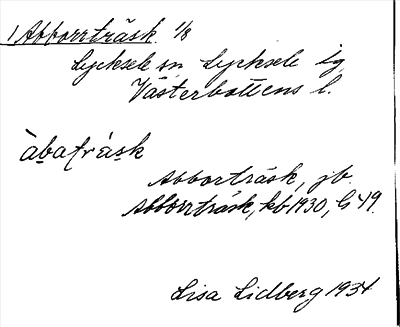 1 Abborrträsk 1/8
Lycksele sn Lycksele lg
Västerbottens l.
àbatrà̱sk
Abborträsk, jb.
Abborrträsk, kb 1930, G 49.
Lisa Lidberg 1934